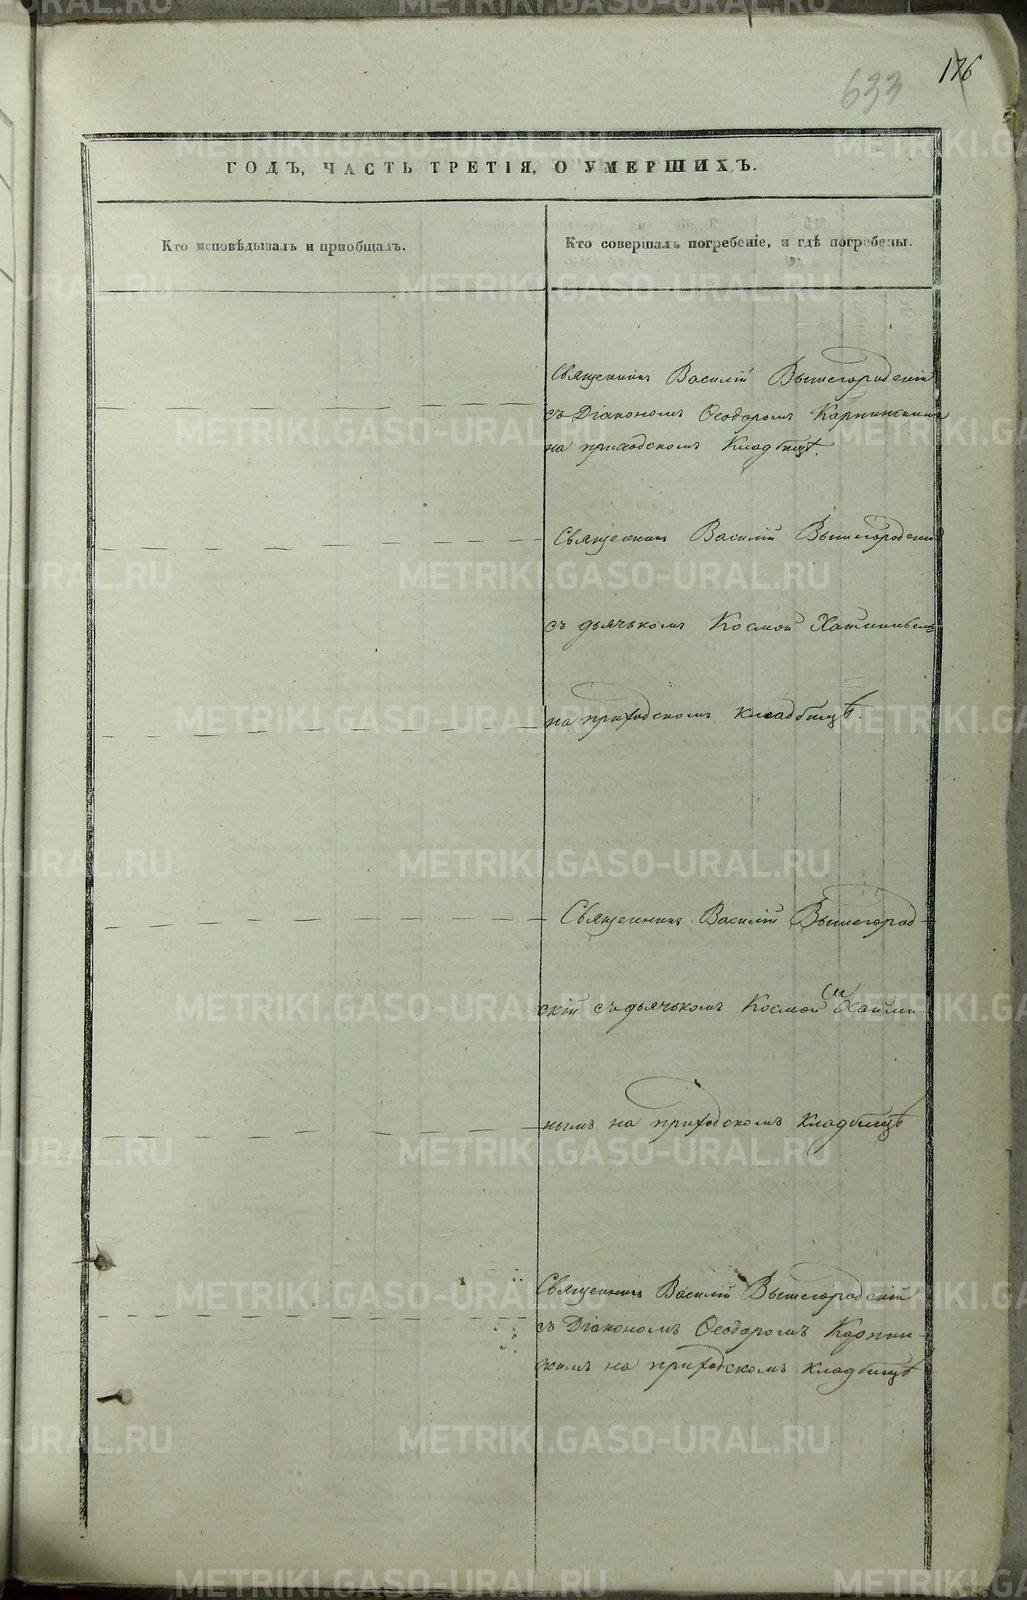 176
633
ГОДЪ, ЧАСТЬ ТРЕТІЯ, О УМЕРШИХЪ.
Кто исповѣдывалъ и приобщалъ.
Кто совершалъ погребеніе, и гдѣ погребены.
Священникъ Василій Вышегородскій
съ Діакономъ Ѳеодоромъ Карпинскимъ
на приходскомъ Кладбищѣ.
Священникъ Василій Вышегородскій
съ дьячькомъ Космой
на приходскомъ кладбищѣ.
Священникъ Василій Вышегород-
скій съ дьячькомъ Космой
нымъ на приходскомъ кладбищѣ
Священникъ Василій Вышегородскій
съ Діакономъ Ѳеодоромъ Карпин-
скимъ на приходскомъ кладбищѣ
METRIKI.GASO-URAL.RU